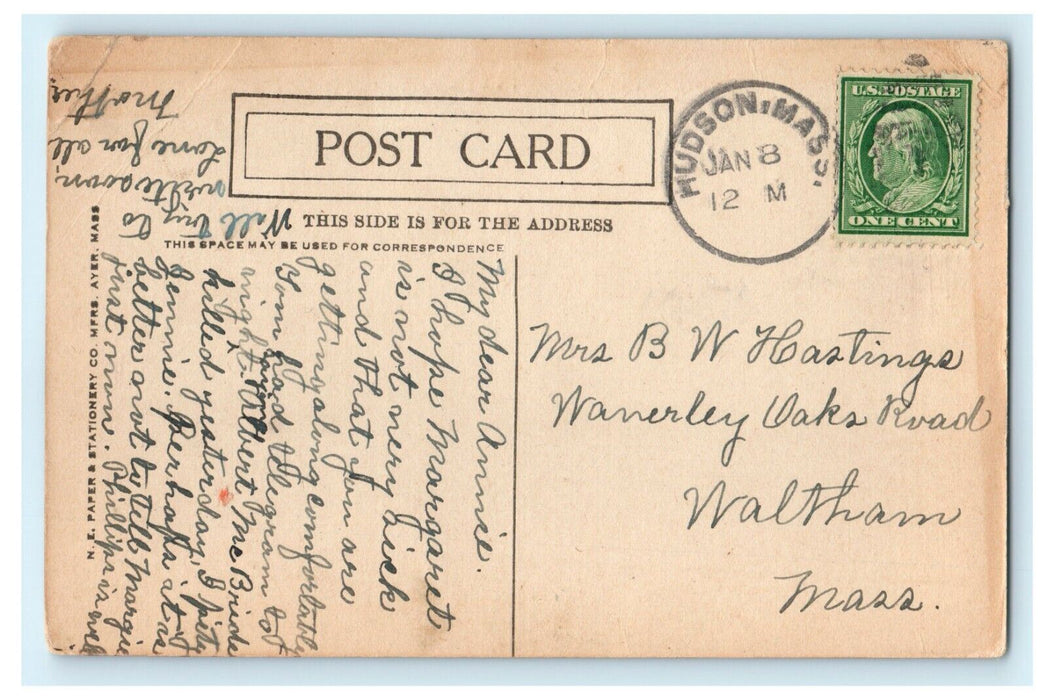 POST CARD
THIS SIDE IS FOR THE ADDRESS
THIS SPACE MAY BE USED FOR CORRESPONDENCE
N. E. PAPER & STATIONERY CO. MFRS. AYER, MASS
HUDSON, MASS.
JAN 8
12 M
U.S. POSTAGE
ONE CENT
Mrs B W Hastings
Waverley Oaks Road
Waltham
Mass.
My dear Annie.
I hope Margaret
is not very sick
and that you are
getting along comfortably
Tom had telegram to
night. Albert McBride
killed yesterday, I pity
Jennie. Perhaps it is
better not to tell Margie
just now. Phillips is well
Will try to
write soon.
Love for all
Mother.